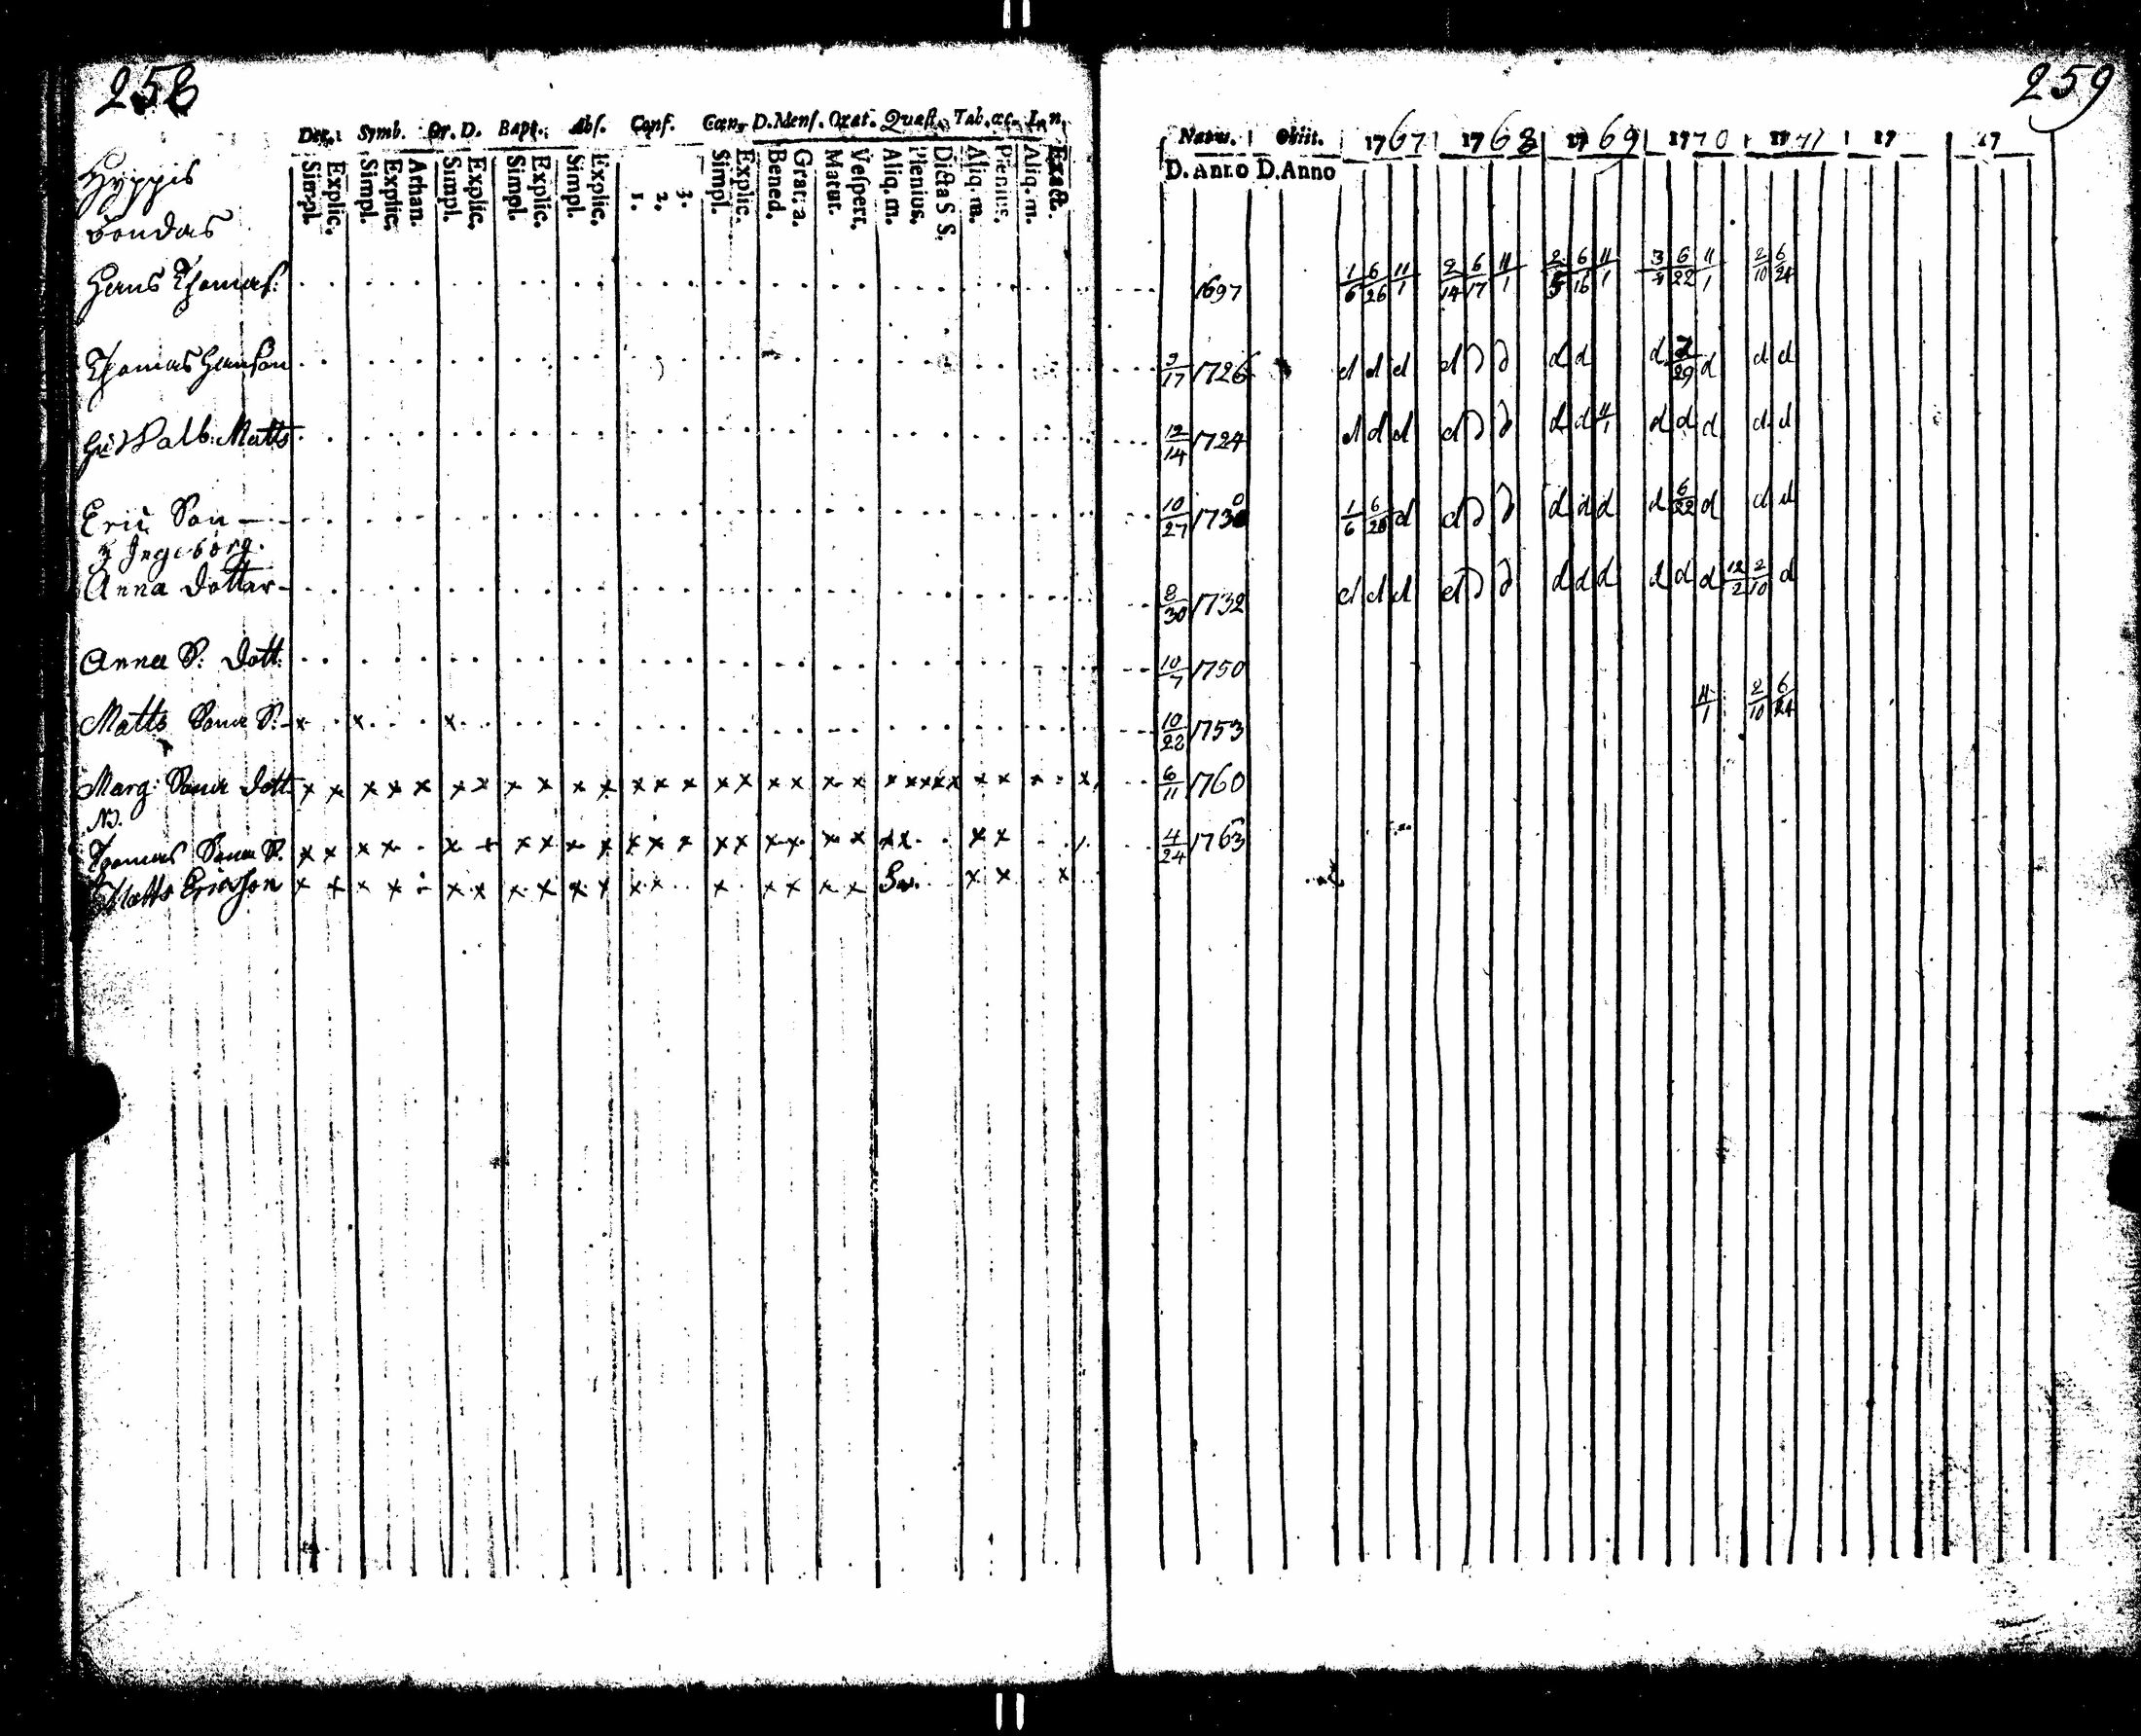 258
Dec. Symb. Or. D. Bapt. Abs. Conf. Cœn. D. Mens. Orat. Quæst. Tab. œc.
Simpl. Explic. Simpl. Explic. Athan. Simpl. Explic. Simpl. Explic. Simpl. Explic. 1. 2. 3. Simpl. Explic. Bened. Grat: a. Matut. Vespert. Aliq. m. Plenius. Dicta S S. Aliq. m. Plenius. Aliq. m. Exact.
Hyppis
bondas
Hans Thomas:
Thomas Hansson
Hu Walb: Matts
Eric Son
h Ingeborg.
Anna dotter
Anna S: dott:
Matts Sone S:
Marg: Sone dott
N3.
Thomas Sone S.
Matts Ericsson
259
Natus. Obiit. 1767 1768 1769 1770 1771 17 17
D. Anno D. Anno
1697 1/6 6/26 11/1 2/14 6/17 11/1 2/5 6/16 11/1 3/4 6/22 11/1 2/10 6/24
9/17 1726 d d d d d d d d d 7/29 d d d
12/14 1724 d d d d d d d d 11/1 d d d d d
10/27 1730 1/6 6/26 d d d d d d d d 6/22 d d d
8/30 1732 d d d d d d d d d d d d 12/2 2/10 d
10/7 1750
11/1 2/10 6/24
10/22 1753
6/11 1760
4/24 1763